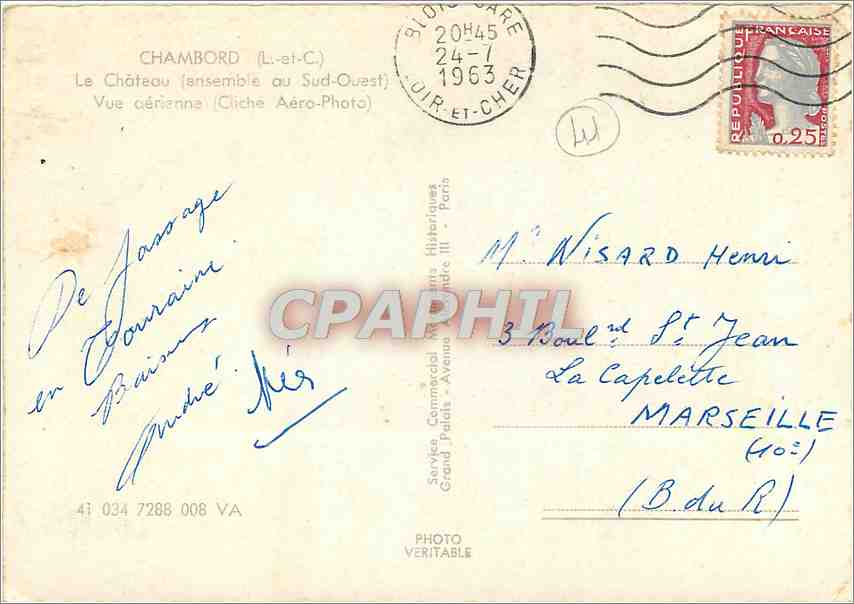 CHAMBORD (L.-et-C.)
Le Château (ensemble au Sud-Ouest)
Vue aérienne (Cliche Aéro-Photo)
BLOIS GARE
20H45
24-7
1963
LOIR-ET-CHER
RÉPUBLIQUE FRANÇAISE
POSTES
0,25
41
De passage
en Touraine
Baisers
André
Service Commercial Monuments Historiques
Grand Palais - Avenue Alexandre III - Paris
CPAPHIL
Mr NISARD Henri
3 Boul.rd St Jean
La Capelette
MARSEILLE
(10e)
(B. du R)
41 034 7288 008 VA
PHOTO
VERITABLE